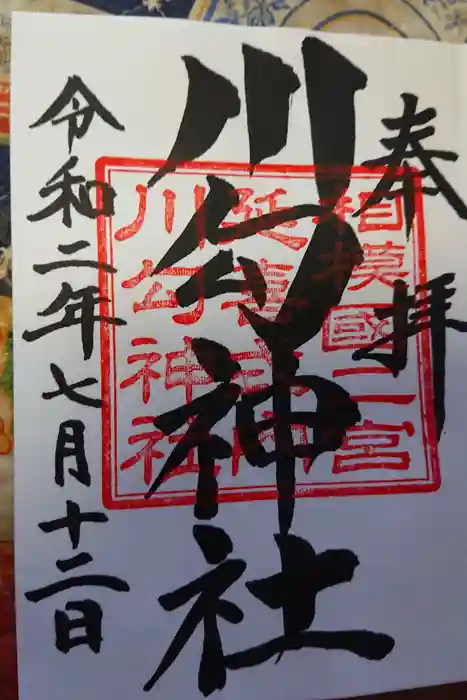 奉拝
川勾神社
令和二年七月十二日
相模國二宮
延喜式内
川勾神社